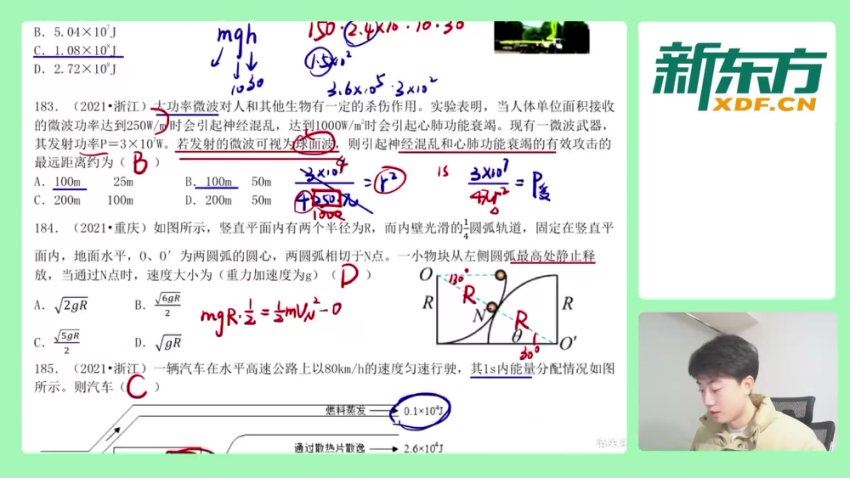 B. 5.04×10⁷J
C. 1.08×10⁸J
D. 2.72×10⁸J
mgh
10 30
150·2.4×10·10·30
1.5×10²
3.6×10⁵·3×10²
新东方
XDF.CN
183. (2021•浙江)大功率微波对人和其他生物有一定的杀伤作用。实验表明，当人体单位面积接收
的微波功率达到250W/m²时会引起神经混乱，达到1000W/m²时会引起心肺功能衰竭。现有一微波武器，
其发射功率P＝3×10⁷W。若发射的微波可视为球面波，则引起神经混乱和心肺功能衰竭的有效攻击的
最远距离约为( B )
A. 100m 25m B. 100m 50m
C. 200m 100m D. 200m 50m
1s
184. (2021•重庆)如图所示，竖直平面内有两个半径为R，而内壁光滑的1/4圆弧轨道，固定在竖直平
面内，地面水平，O、O′为两圆弧的圆心，两圆弧相切于N点。一小物块从左侧圆弧最高处静止释
放，当通过N点时，速度大小为(重力加速度为g)( D )
A. √2gR B. √6gR/2
C. √5gR/2 D. √gR
mgR·1/2=1/2mV_N²-0
O 30°
R R N R R
θ 30° O′
185. (2021•浙江)一辆汽车在水平高速公路上以80km/h的速度匀速行驶，其1s内能量分配情况如图
所示。则汽车( C
燃料蒸发 0.1×10⁴J
通过散热片散逸 2.6×10⁴J